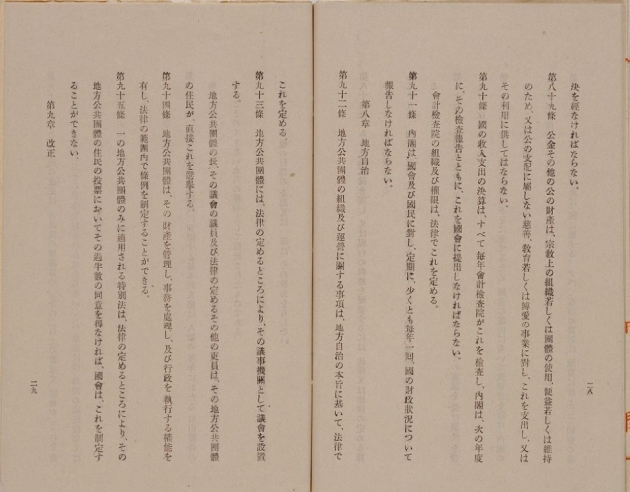 決を經なければならない。
第八十九條　公金その他の公の財產は、宗敎上の組織若しくは團體の使用、便益若しくは維持
のため、又は公の支配に屬しない慈善、敎育若しくは博愛の事業に對し、これを支出し、又は
その利用に供してはならない。
第九十條　國の收入支出の決算は、すべて每年會計檢査院がこれを檢査し、內閣は、次の年度
に、その檢査報告とともに、これを國會に提出しなければならない。
會計檢査院の組織及び權限は、法律でこれを定める。
第九十一條　內閣は、國會及び國民に對し、定期に、少くとも每年一回、國の財政狀況について
報告しなければならない。
第八章　地方自治
第九十二條　地方公共團體の組織及び運營に關する事項は、地方自治の本旨に基いて、法律で
二八
これを定める
第九十三條　地方公共團體には、法律の定めるところにより、その議事機關として議會を設置
する。
地方公共團體の長、その議會の議員及び法律の定めるその他の吏員は、その地方公共團體
の住民が、直接これを選擧する。
第九十四條　地方公共團體は、その財產を管理し、事務を處理し、及び行政を執行する權能を
有し、法律の範圍內で條例を制定することができる。
第九十五條　一の地方公共團體のみに適用される特別法は、法律の定めるところにより、その
地方公共團體の住民の投票においてその過半數の同意を得なければ、國會は、これを制定す
ることができない。
第九章　改正
二九